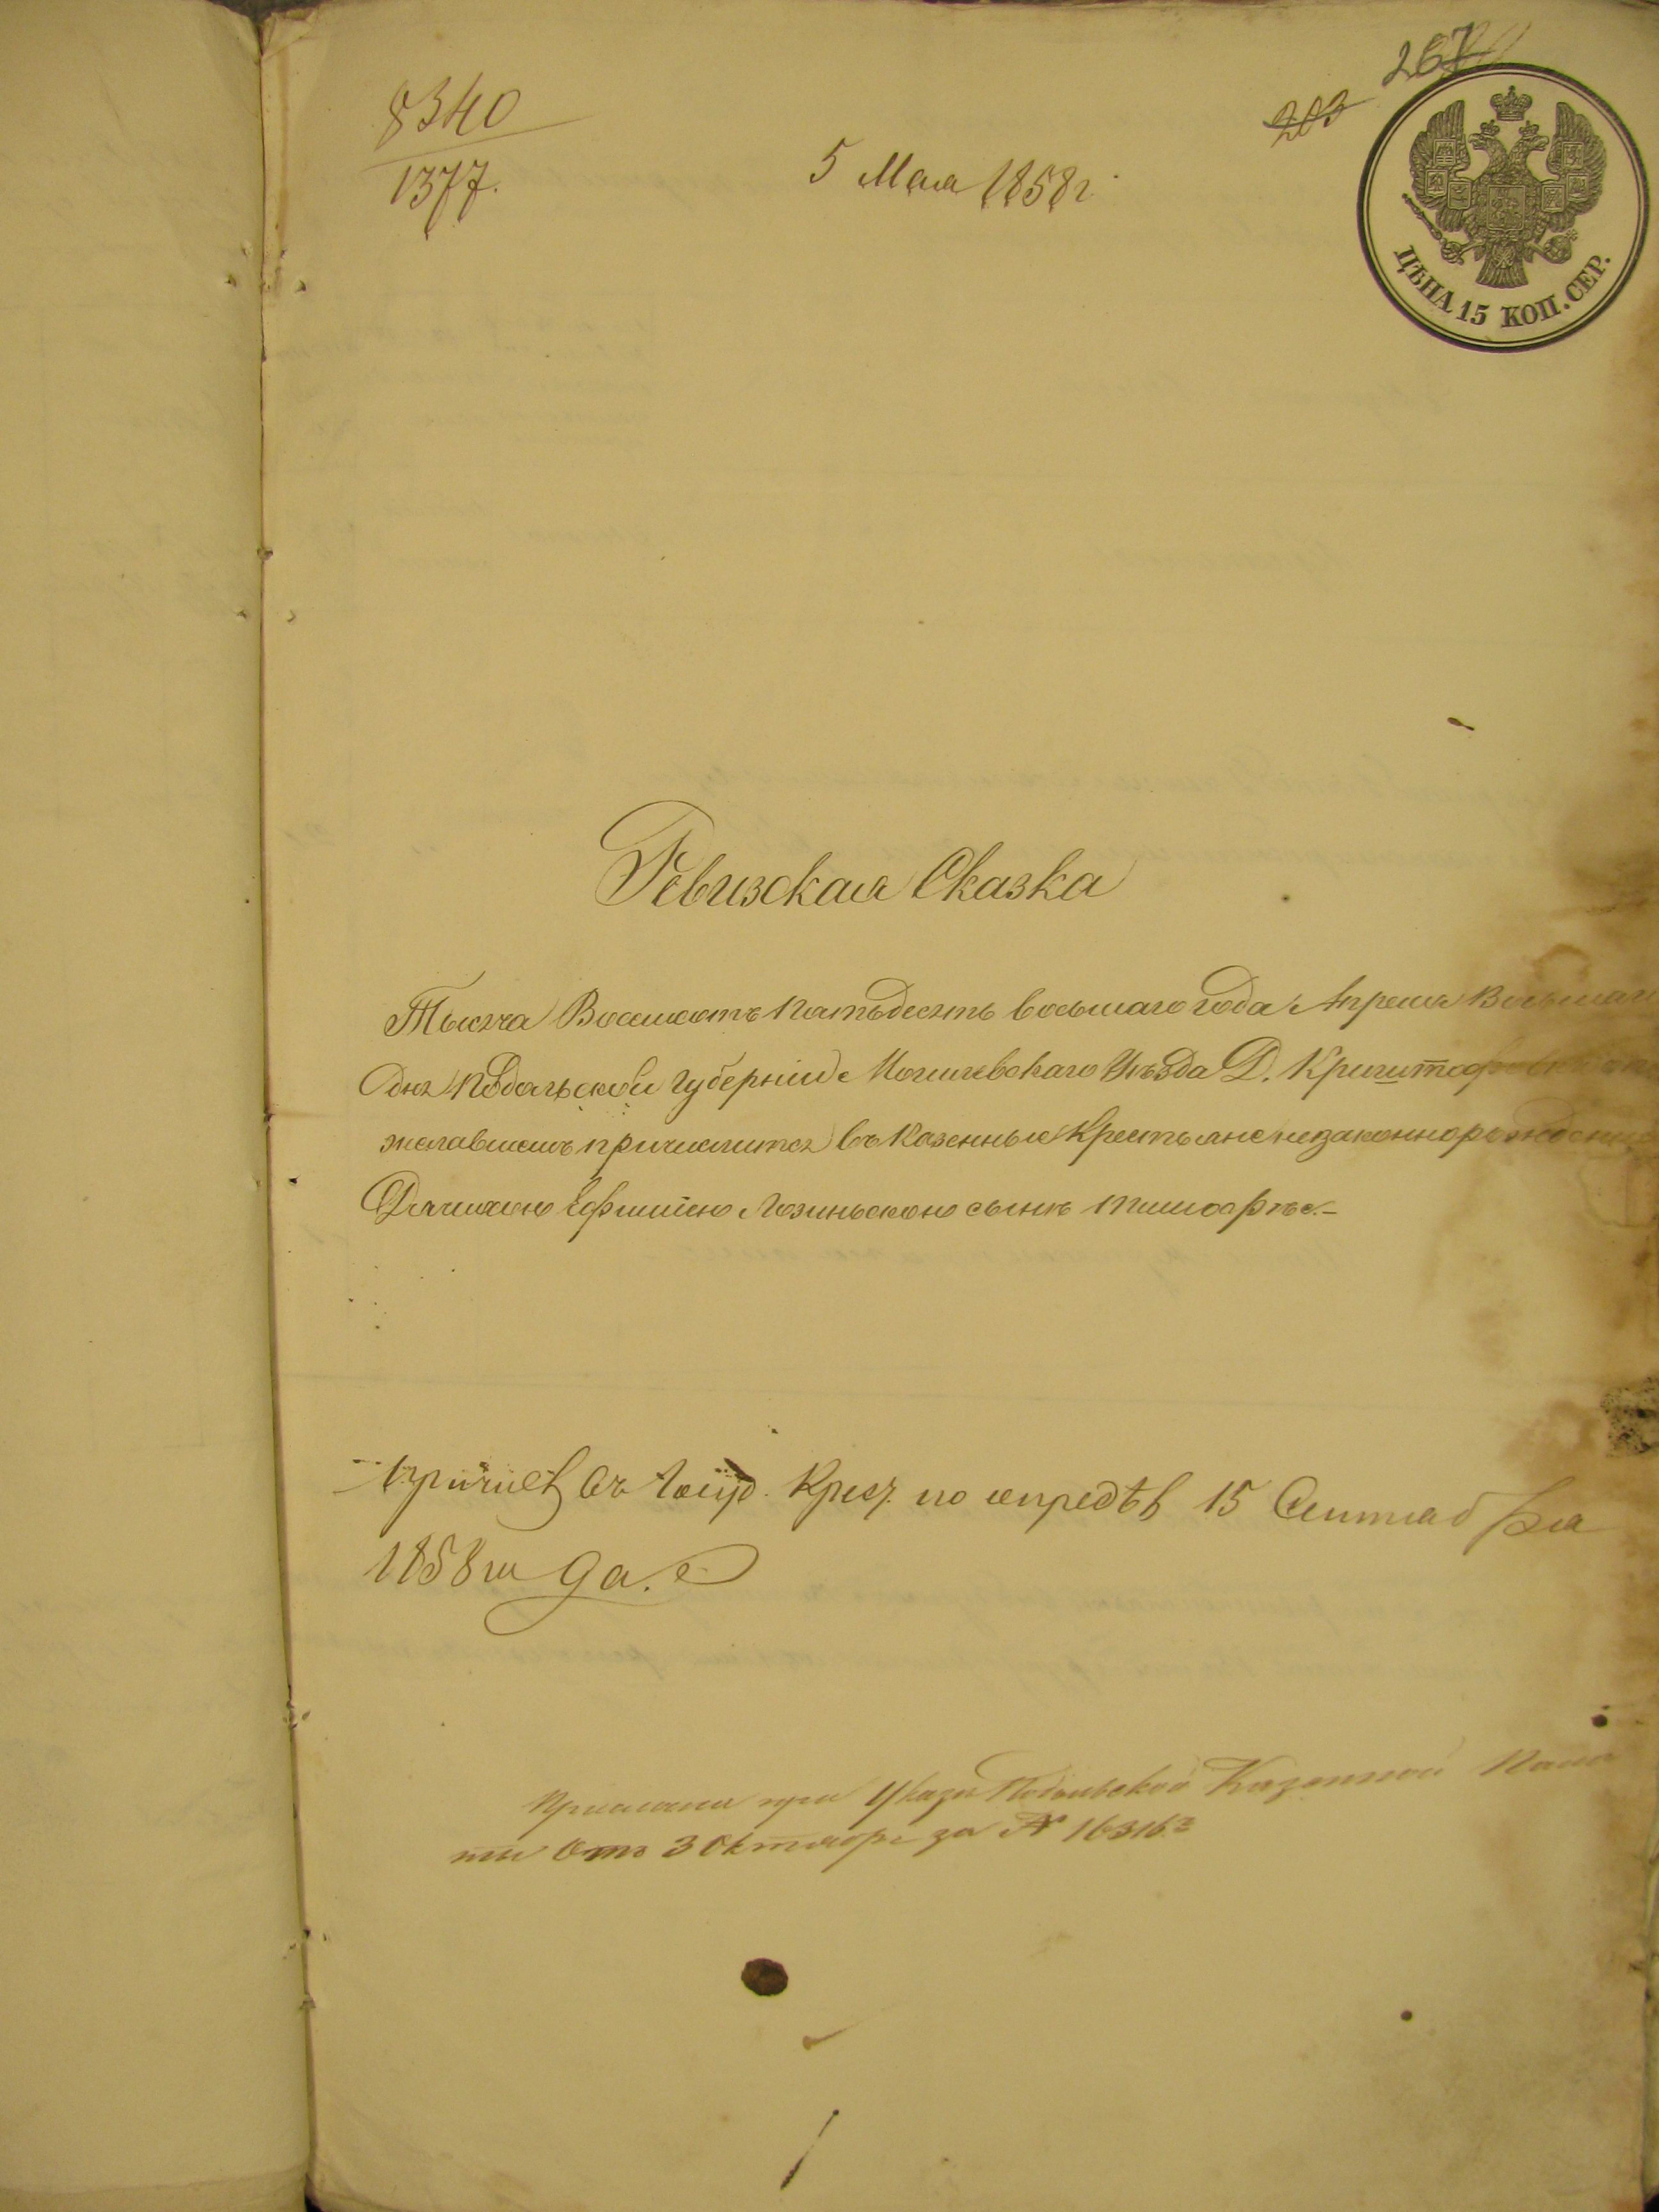 267
203
8340
1377.
5 Мая 1858 г.
ЦѢНА 15 КОП. СЕР.
Ревизская Сказка
Тысяча Восемсотъ Пятьдесятъ восьмаго года Апреля
дня Подольской Губерніи Могилевскаго Уѣзда Д.
желавшемъ причислится въ Казенные Крестьяне незаконнорожденно
Ефиміею сынѣ
въ Госуд. Крест. по опредѣ 15 Сентября
1858 года.
при Указѣ Подольской Казенной Пала
ты отъ 3 Октября за № 16316